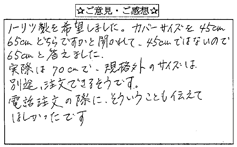 ☆ご意見・ご感想☆
ノーリツ製を希望しました。カバーサイズを45cm
65cmどちらですかと聞かれて、45cmではないので
65cmと答えました。
実際は70cmで、規格外のサイズは
別途注文できるそうです。
電話注文の際に、そういうことも伝えて
ほしかったです